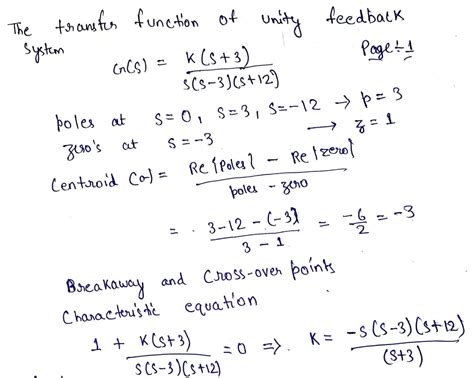 The transfer function of unity feedback
System
Page:-1
G(S) = K(S+3) / S(S-3)(S+12)
poles at S=0, S=3, S=-12 → P=3
zero's at S=-3 → z=1
Centroid (σ)= Re{Poles} - Re{zero} / poles - zero
= 3-12-(-3) / 3-1 = -6/2 = -3
Breakaway and Cross-over points
Characteristic equation
1 + K(S+3) / S(S-3)(S+12) = 0 ⇒ K = -S(S-3)(S+12) / (S+3)